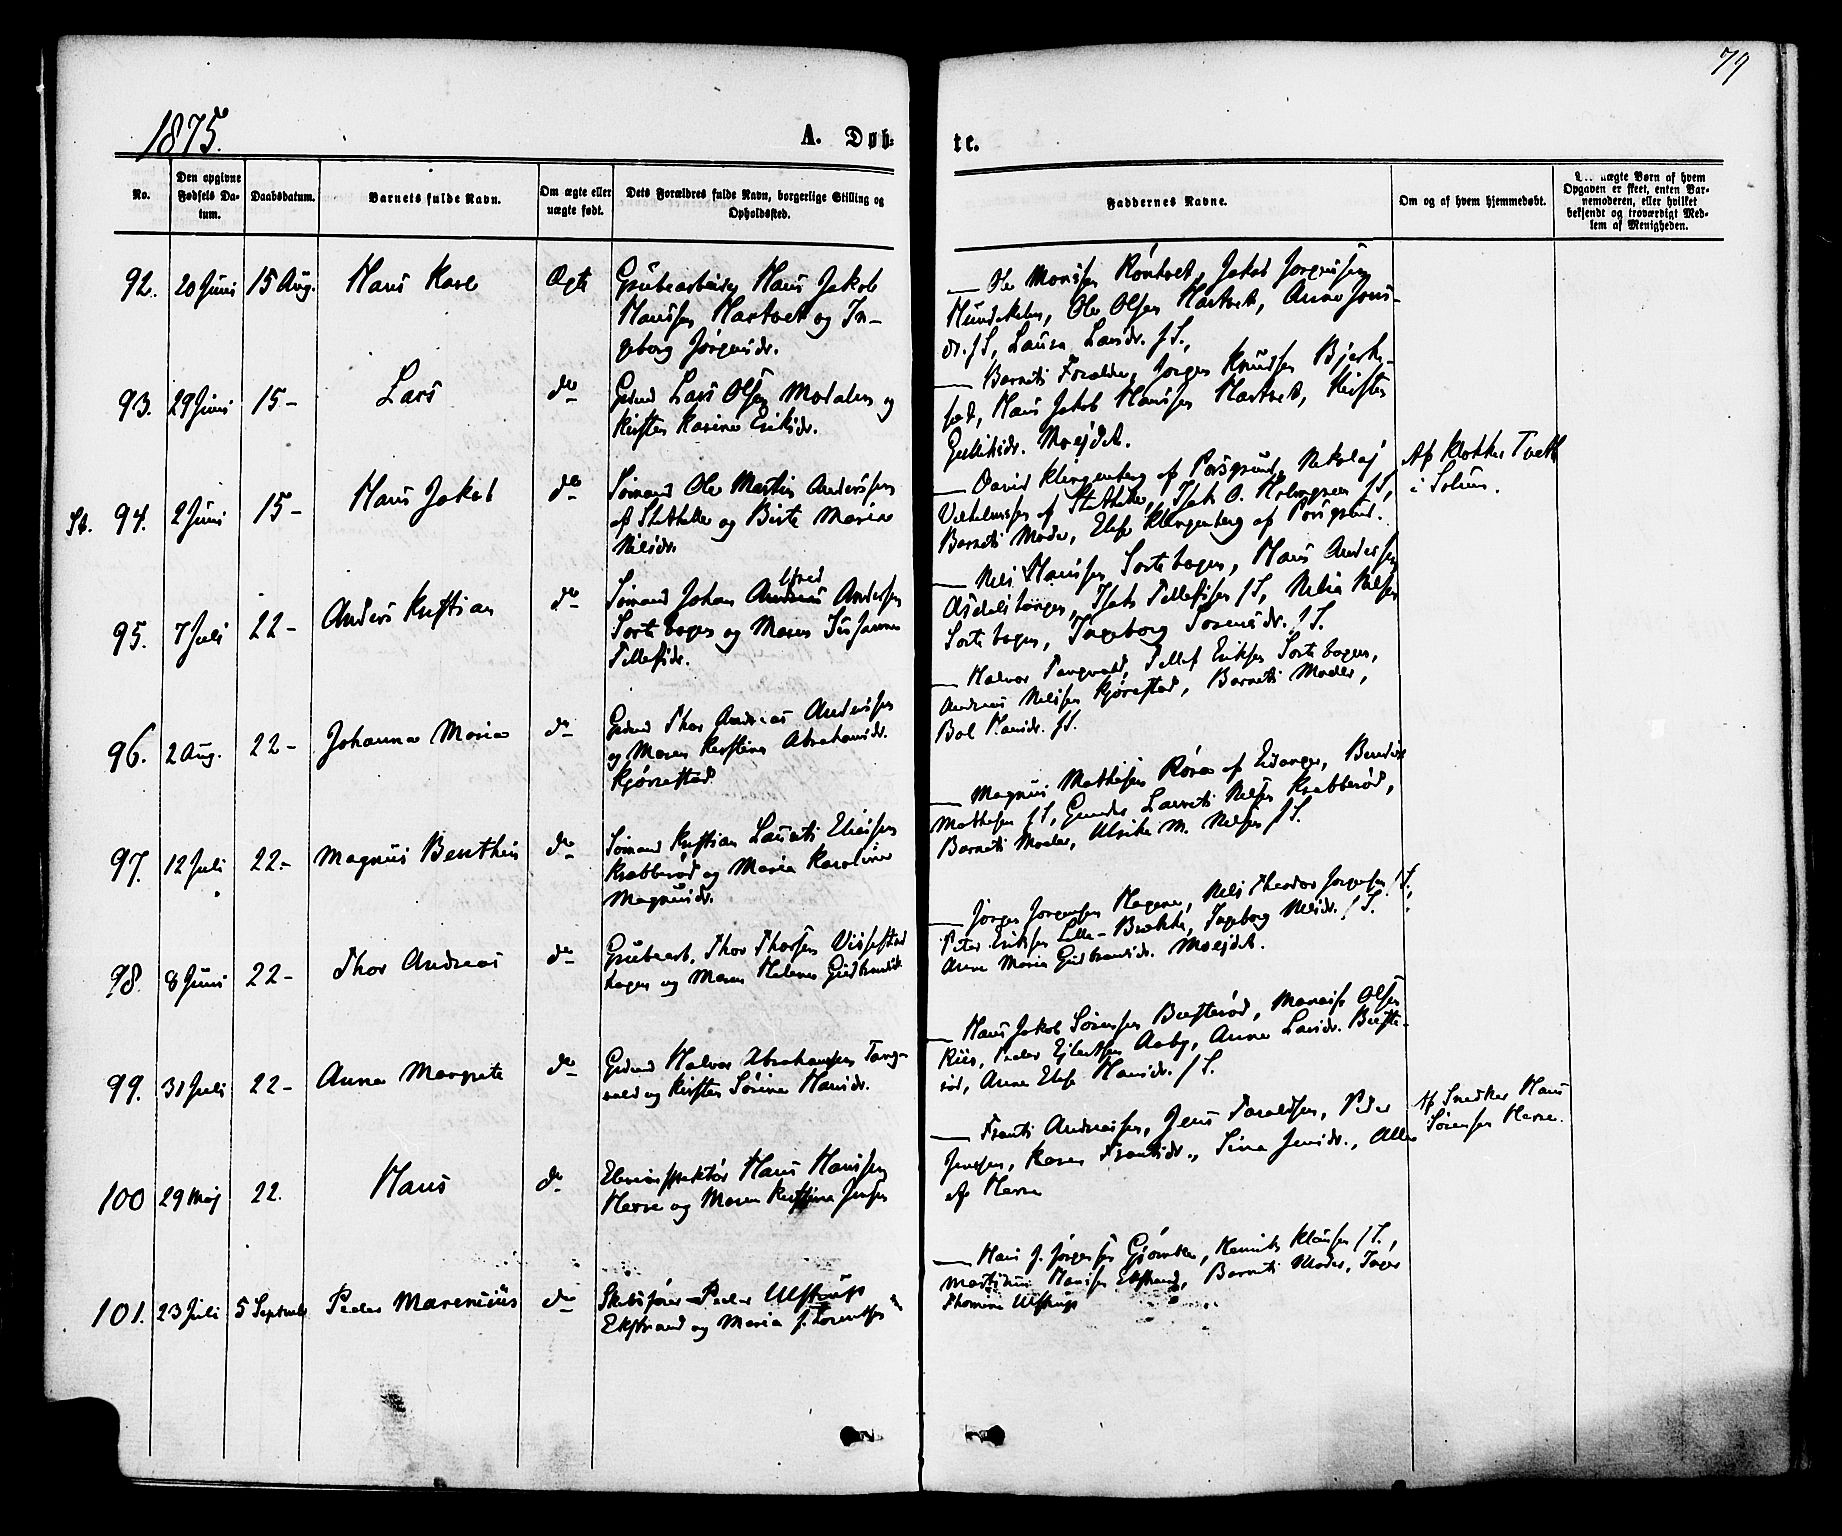 79
1875.
A. Døb-
te.
No.
Den opgivne Fødsels Da-
tum.
Daabsdatum.
Barnets fulde Navn.
Om ægte eller
uægte født.
Dets Forældres fulde Navn, borgerlige Stilling og
Opholdssted.
Faddernes Navne.
Om og af hvem hjemmedøbt.
uægte Børn af hvem
Opgaven er skeet, enten Bar-
nemoderen, eller hvilket
bekjendt og troværdigt Med-
lem af Menigheden.
92. 20 Juni 15 Aug. Hans Karl Ægte
Grubearbeider Hans Jakob
Hanssen Hartvet og In-
geborg Jørgensdr.
Ole Monssen Røntvet, Jakob Jørgensen
Ole Olsen Hartvet, Anne Jens-
dr. sS, Laura Larsdr. sS.,
93. 29 Juni 15 - Lars do
Grbmd Lars Olsen Modalen og
Kirsten Karine Eriksdr.
Barnets Forældre, Jørgen Knudsen Bjerke-
sæt, Hans Jakob Hanssen Hartvet, Kirsten
Gulliksdr. Moejdet.
St. 94. 2 Juni 15 - Hans Jakob do
Sømand Ole Martin Anderssen
af Stathelle og Birte Maria
Nilsdr.
David Klingenberg af Porsgrund, Nikolaj
Vilhelmssen af Stathelle, Isak O. Holmgren sS,
Barnets Moder, Else Klingenberg af Porsgrund.
Af Klokker Tveth
i Solum.
95. 7 Juli 22 - Anders Kristian do
lfred
Sømand Johan Andreas Andersen
Sortebogen og Maren Susanne
Tellefsdr.
Nils Hanssen Sortebogen, Hans Anderssen
Isak Tellefssen sS, Nilia Nilsen
Sortebogen, Ingeborg Sørensdr. sS.
96. 2 Aug. 22 - Johanna Maria do
Grbmd Thor Andreas Anderssen
og Maren Kirstine Abrahamsdr.
Kjørrestad
Halvor Tangvald, Tellef Eriksen Sortebogen,
Andreas Nilsen Kjørrestad, Barnets Moder,
Bol Hansdr. sS.
97. 12 Juli 22 - Magnus Benthin do
Sømand Kristian Laurits Eliassen
Krabberød og Maria Karoline
Magnusdr.
Magnus Mathisen Røra af Eidanger,
Mathisen sS, Gunder Laurits Nilsen Krabberød,
Barnets Moder, Ulrikke M. Nilsen sS.
98. 8 Juni 22 - Thor Andreas do
Grubearb. Thor Thorsen Vissestad
hagen og Maren Helene Gudbrandsdr.
Jørgen Jørgensen Hegene, Nils Theodor Jørgensen sS.,
Peter Eriksen Lille-Brekke, Ingeborg Nilsdr. sS.
Anne Maria Gudbrandsdr. Moejdet.
99. 31 Juli 22 - Anna Margrete do
Grbmd Halvor Abrahamsen Tang-
vald og Kirsten Sørine Hansdr.
Hans Jakob Sørensen Busterød, Olsen
Riis, Peder Ejlertsen Aaby, Anne Larsdr. Buste-
rød, Anne Else Hansdr. sS.
100 29 Maj 22. Hans do
Hans Hanssen
Herre og Maren Kirstine Jensen
Frants Andreassen, Jens Taraldsen, Peder
Jensen, Karen Frantsdr., Sina Jensdr., Alle
af Herre
Af Snedker Hans
Sørensen Herre.
101. 23 Juli 5 Septembr Peder Marenius do
Skibsfører Peder Ulstrup
Ekstrand og Maria J. Lorentsen
Hans J. Jørgensen Henrik Klausen sS.,
Hanssen Ekstrand, Barnets Moder, Inger
Thomine Ulstrup